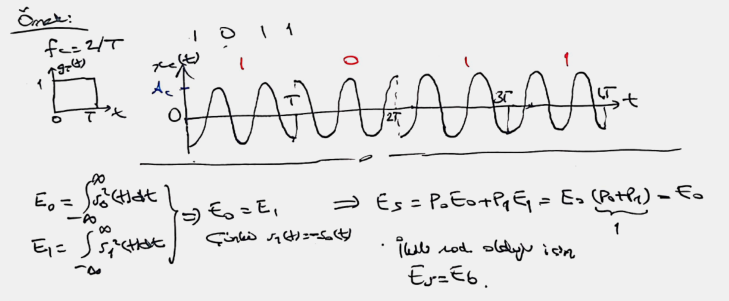 Örnek:
f_c = 2/T
g_T(t)
1
0 T t
1 0 1 1
x_c(t)
1 0 1 1
A_c
0 T 2T 3T 4T t
E_0 = ∫_{-∞}^{∞} s_0^2(t)dt
E_1 = ∫_{-∞}^{∞} s_1^2(t)dt
⇒ E_0 = E_1
Çünkü s_1(t) = -s_0(t)
⇒ E_s = P_0E_0 + P_1E_1 = E_0 (P_0+P_1) = E_0
1
· İkili mod olduğu için
E_s = E_b.